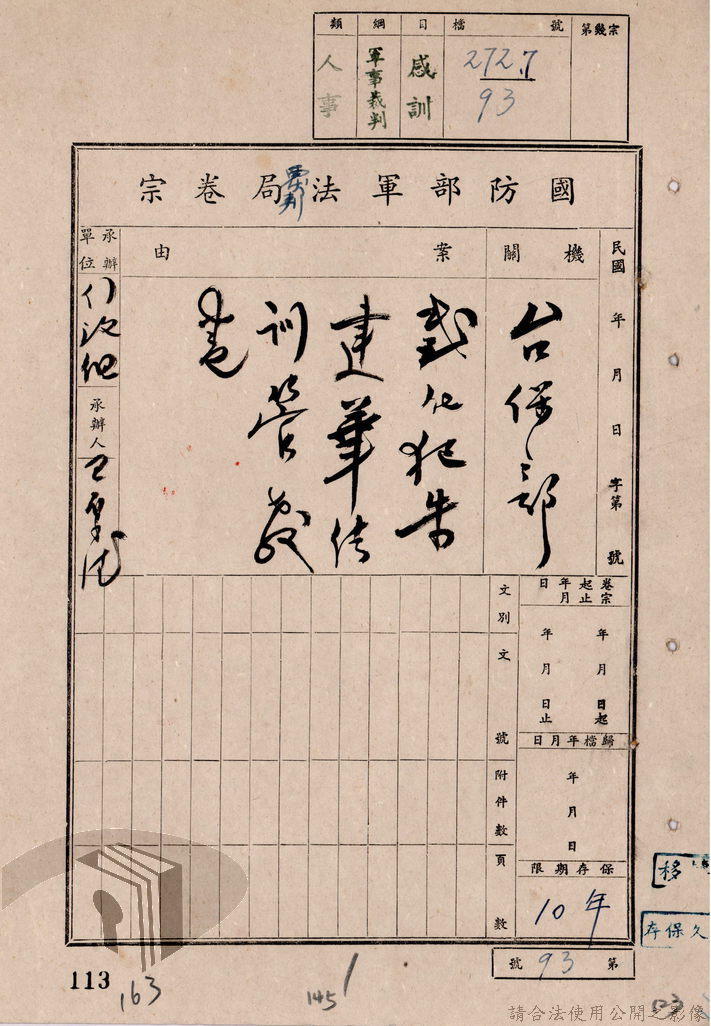 類 綱 目 檔 號 第幾宗
人事
軍事裁判
感訓
272.7
93
國防部軍法局卷宗
機關
案由
承辦單位
承辦人
民國 年 月 日 字第 號
台保部
感化犯朱
建華結
訓管
卷
卷宗起止年月日
年 月 日起
年 月 日止
歸檔年月日
年 月 日
保存期限
10年
文別
文號
附件數
頁數
第 93 號
移
永久保存
113
163
145
1
請合法使用公開之影像